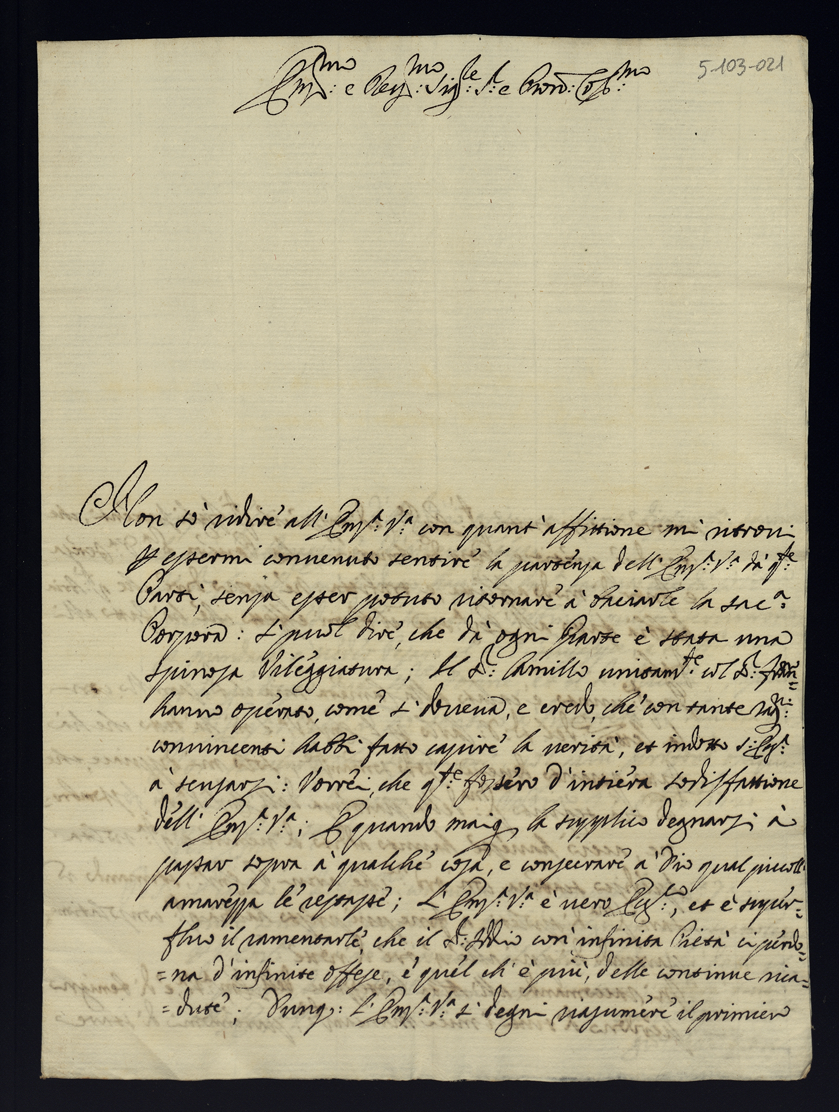 5-103-021
Em:mo e Rev:mo Sig:re S:r e Pron: Col:mo
Non sò ridire all' Em:a V:a con quant' afflitione mi ritrovi
p essermi convenuto sentire la partenza dell' Em:a V:a da q:te
Parti, senza esser potuto ritornare à baciarle la sac:a
Porpora: si puol dire, che dà ogni Parte è stata una
spinosa Vileggiatura; Il S:r Camillo unitam:te col S:r
hanno operato, come si doveva, e credo, che con tante rag:ni
convincenti habbi fatto capire la verità, et indotto
à scusarsi: Vorrei, che q:te fossero d'intiera sodisfattione
dell' Em:a V:a; E quando mai la supplico degnarsi à
passar sopra à qualche cosa, e consecrare à Dio qual piccol
amarezza le restasse; L' Em:a V:a è vero et è super=
fluo il ramentarle, che il S:r Iddio con infinita Pietà ci perdo=
=na d'infinite offese, e quel ch' è più, delle continue rica=
=dute; Dunq: l' Em:a V:a si degni riassumere il primiero